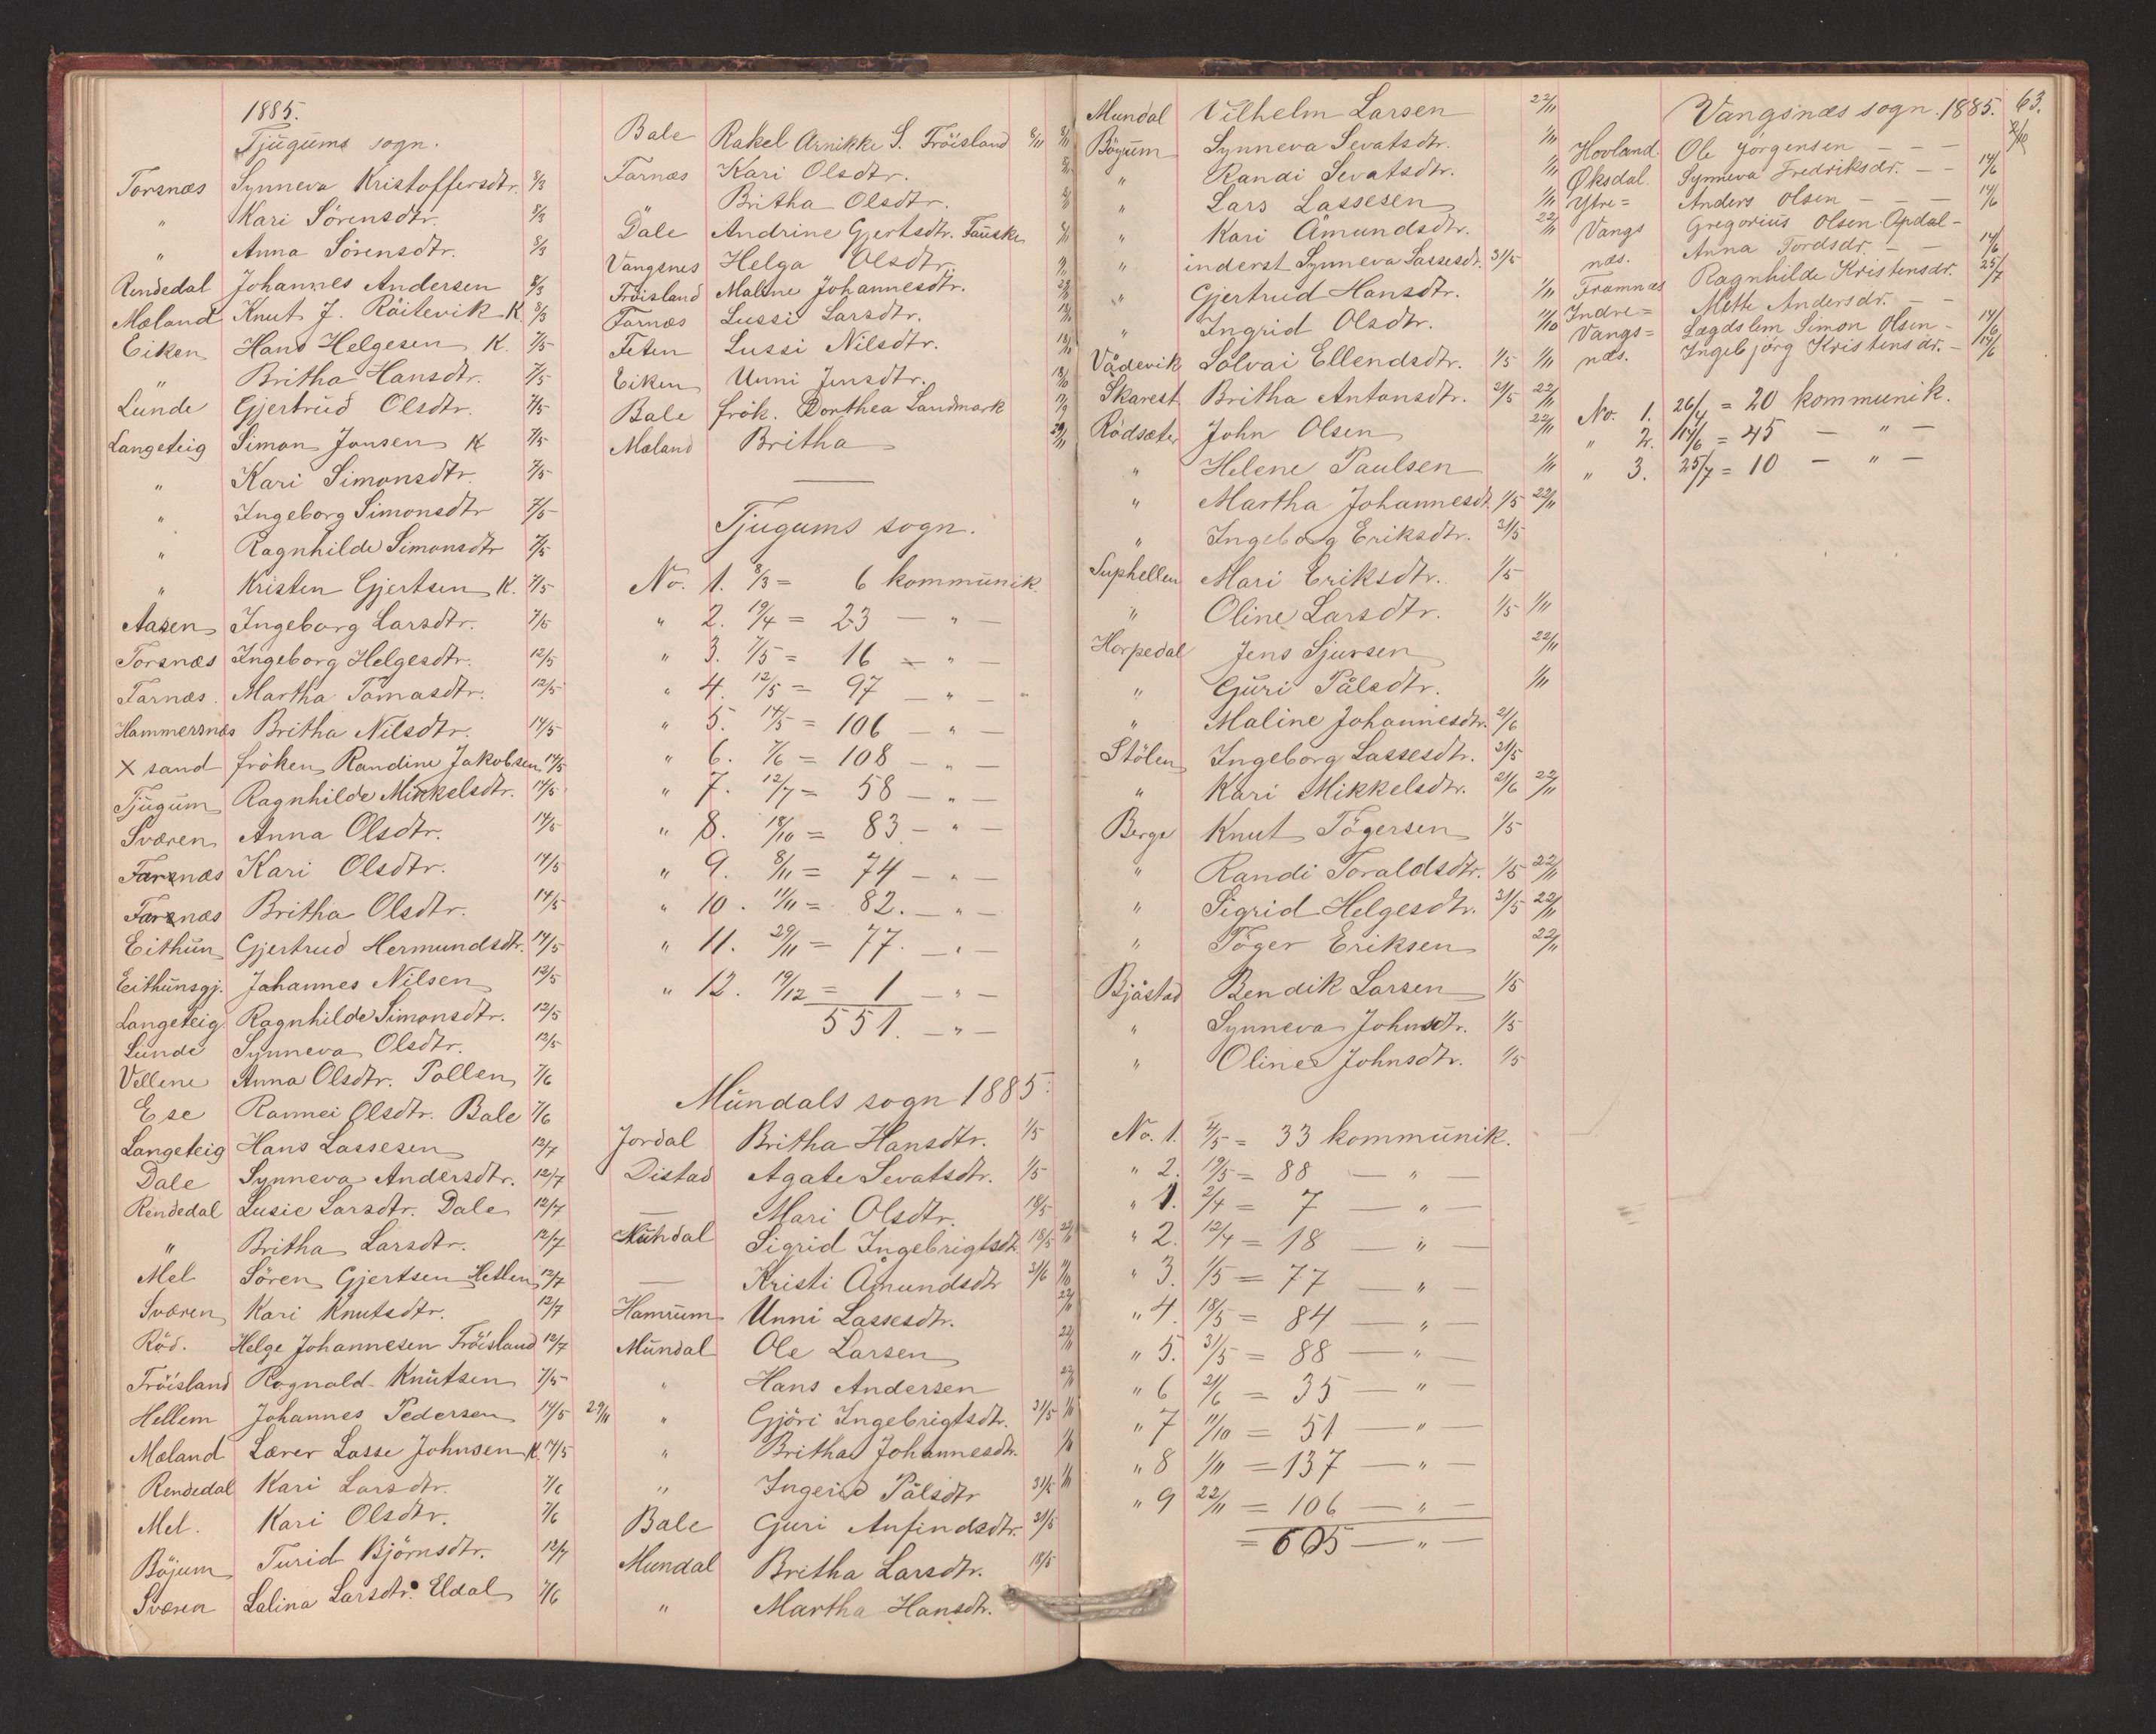 1885.
Tjugums sogn.
Torsnæs Synneva Kristoffersdtr. 8/3
" Kari Sörensdtr. 8/3
" Anna Sörensdtr. 8/3
Rendedal Johannes Andersen 8/3
Mæland Knut J. Röitevik K. 8/3
Eiken Hans Helgesen K. 7/5
" Britha Hansdtr. 7/5
Lunde Gjertrud Olsdtr. 7/5
Langeteig Simon Jonsen K 7/5
" Kari Simonsdtr. 7/5
" Ingeborg Simonsdtr 7/5
" Ragnhilde Simonsdtr 7/5
" Kristen Gjertsen K. 7/5
Aasen Ingeborg Larsdtr. 7/5
Torsnæs Ingeborg Helgesdtr. 12/5
Farnæs. Martha Tomasdtr. 12/5
Hammersnæs Britha Nilsdtr. 14/5
X sand fröken Randine Jakobsen 14/5
Tjugum Ragnhilde Mikkelsdtr. 14/5
Sværen Anna Olsdtr. 14/5
Farnæs Kari Olsdtr. 14/5
Farnæs Britha Olsdtr. 14/5
Eithun Gjertrud Hermundsdtr. 14/5
Eithunsgj. Johannes Nilsen 12/5
Langeteig Ragnhilde Simonsdtr. 12/5
Lunde Synneva Olsdtr. 12/5
Vellene Anna Olsdtr. Pollen 7/6
Ese Rannei Olsdtr. Bale 7/6
Langeteig Hans Lassesen 12/7
Dale Synneva Andersdtr. 12/7
Rendedal Lusie Larsdtr. Dale 12/7
" Britha Larsdtr. 12/7
Mel Sören Gjertsen Hetlen 12/7
Sværen Kari Knutsdtr. 12/7
Röd. Helge Johannesen Fröisland 12/7
Fröisland Rognald Knutsen 7/5
Hellem Johannes Pedersen 14/5 29/11
Mæland Lærer Lasse Johnsen K. 14/5
Rendedal Kari Larsdtr. 7/6
Mel. Kari Olsdtr. 7/6
Böjum Turid Björnsdtr. 12/7
Sværen Lalina Larsdtr. Eldal 7/6
Bale Rakel Arnikke S. Fröisland 8/11
Farnæs Kari Olsdtr.
" Britha Olsdtr.
Dale Andrine Gjertsdtr. Fauske
Vangsnes Helga Olsdtr.
Fröisland Maline Johannesdtr.
Farnæs Lussi Larsdtr.
Feten Lussi Nilsdtr.
Eiken Unni Jensdtr.
Bale frök. Dorthea Landmark
Mæland Britha 29/11
Tjugums sogn.
No. 1. 8/3 = 6 kommunik.
" 2. 19/4 = 23 — " —
" 3. 7/5 = 16 — " —
" 4. 12/5 = 97 — " —
" 5. 14/5 = 106 — " —
" 6. 7/6 = 108 — " —
" 7. 12/7 = 58 — " —
" 8. 18/10 = 83 — " —
" 9. 8/11 = 74 — " —
" 10. 11/11 = 82. — " —
" 11. 29/11 = 77. — " —
" 12. 19/12 = 1 — " —
551. — " —
Mundals sogn 1885.
Jordal Britha Hansdtr. 1/5
Distad Agate Sevatsdtr. 1/5
— Mari Olsdtr. 18/5
Mundal Sigrid Ingebrigtsdt. 18/5
— Kristi Åmundsdtr
Hamrum Unni Lassesdtr.
Mundal Ole Larsen
" Hans Andersen
" Gjöri Ingebrigtsdtr. 31/5
" Britha Johannesdtr.
" Ingerid Pålsdtr 31/5
Bale Guri Anfindsdtr. 31/5
Mundal Britha Larsdtr. 18/5
" Martha Hansdtr.
Mundal Vilhelm Larsen 22/11
Böyum Synneva Sevatsdtr. 1/11
" Randi Sevatsdtr. 1/11
" Lars Lassesen 1/11
" Kari Åmundsdtr. 22/11
" inderst Synneva Lassesdt. 31/5
" Gjertrud Hansdtr. 1/11
" Ingrid Olsdtr. 11/10
Vådevik Solvai Ellendsdtr. 1/5 1/11
Skarest. Britha Antonsdtr. 31/5 22/11
Rödsæter John Olsen 22/11
" Helene Paulsen 1/11
" Martha Johannesdt. 1/5 22/11
" Ingeborg Eriksdtr. 31/5
Suphellen Mari Eriksdtr. 1/5
" Oline Larsdtr. 1/5 1/11
Horpedal Jens Sjursen 22/11
" Guri Pålsdtr. 1/11
" Maline Johannesdtr. 21/6
Stölen Ingeborg Lassesdtr. 31/5
" Kari Mikkelsdtr. 21/6 22/11
Berge Knut Tögersen 1/5
" Randi Toraldsdtr. 1/5 22/11
" Sigrid Helgesdtr. 31/5 22/11
" Töger Eriksen 22/11
Bjåstad Bendik Larsen 1/5
" Synneva Johnsdtr. 1/5
" Oline Johnsdtr. 1/5
No. 1. = 33 kommunik.
" 2. 19/5 = 88 — " —
" 1. 2/4 = 7 — " —
" 2. 12/4 = 18 — " —
" 3. 1/5 = 77 — " —
" 4. 18/5 = 84 — " —
" 5. 31/5 = 88 — " —
" 6 21/6 = 35 — " —
" 7 11/10 = 51 — " —
" 8 1/11 = 137 — " —
" 9 22/11 = 106 — " —
= 605 — " —
Vangsnæs sogn. 1885. 63.
Hovland. Ole Jörgensen — — —
Øksdal. Synneva Fredriksdr. — — 14/6
Ytre = Anders Olsen — — — 14/6
Vangs Gregorius Olsen Opdal —
næs. Anna Tordsdr. — — 14/6
Framnæs Ragnhilde Kristensdr. 25/7
Indre = Mette Andersdr. — —
Vangs = Lægdslem Simon Olsen — 14/6
næs. Ingebjörg Kristensdr. — 14/6
No. 1. 26/4 = 20 kommunik.
" 2. 14/6 = 45 — " —
" 3. 25/7 = 10 — " —